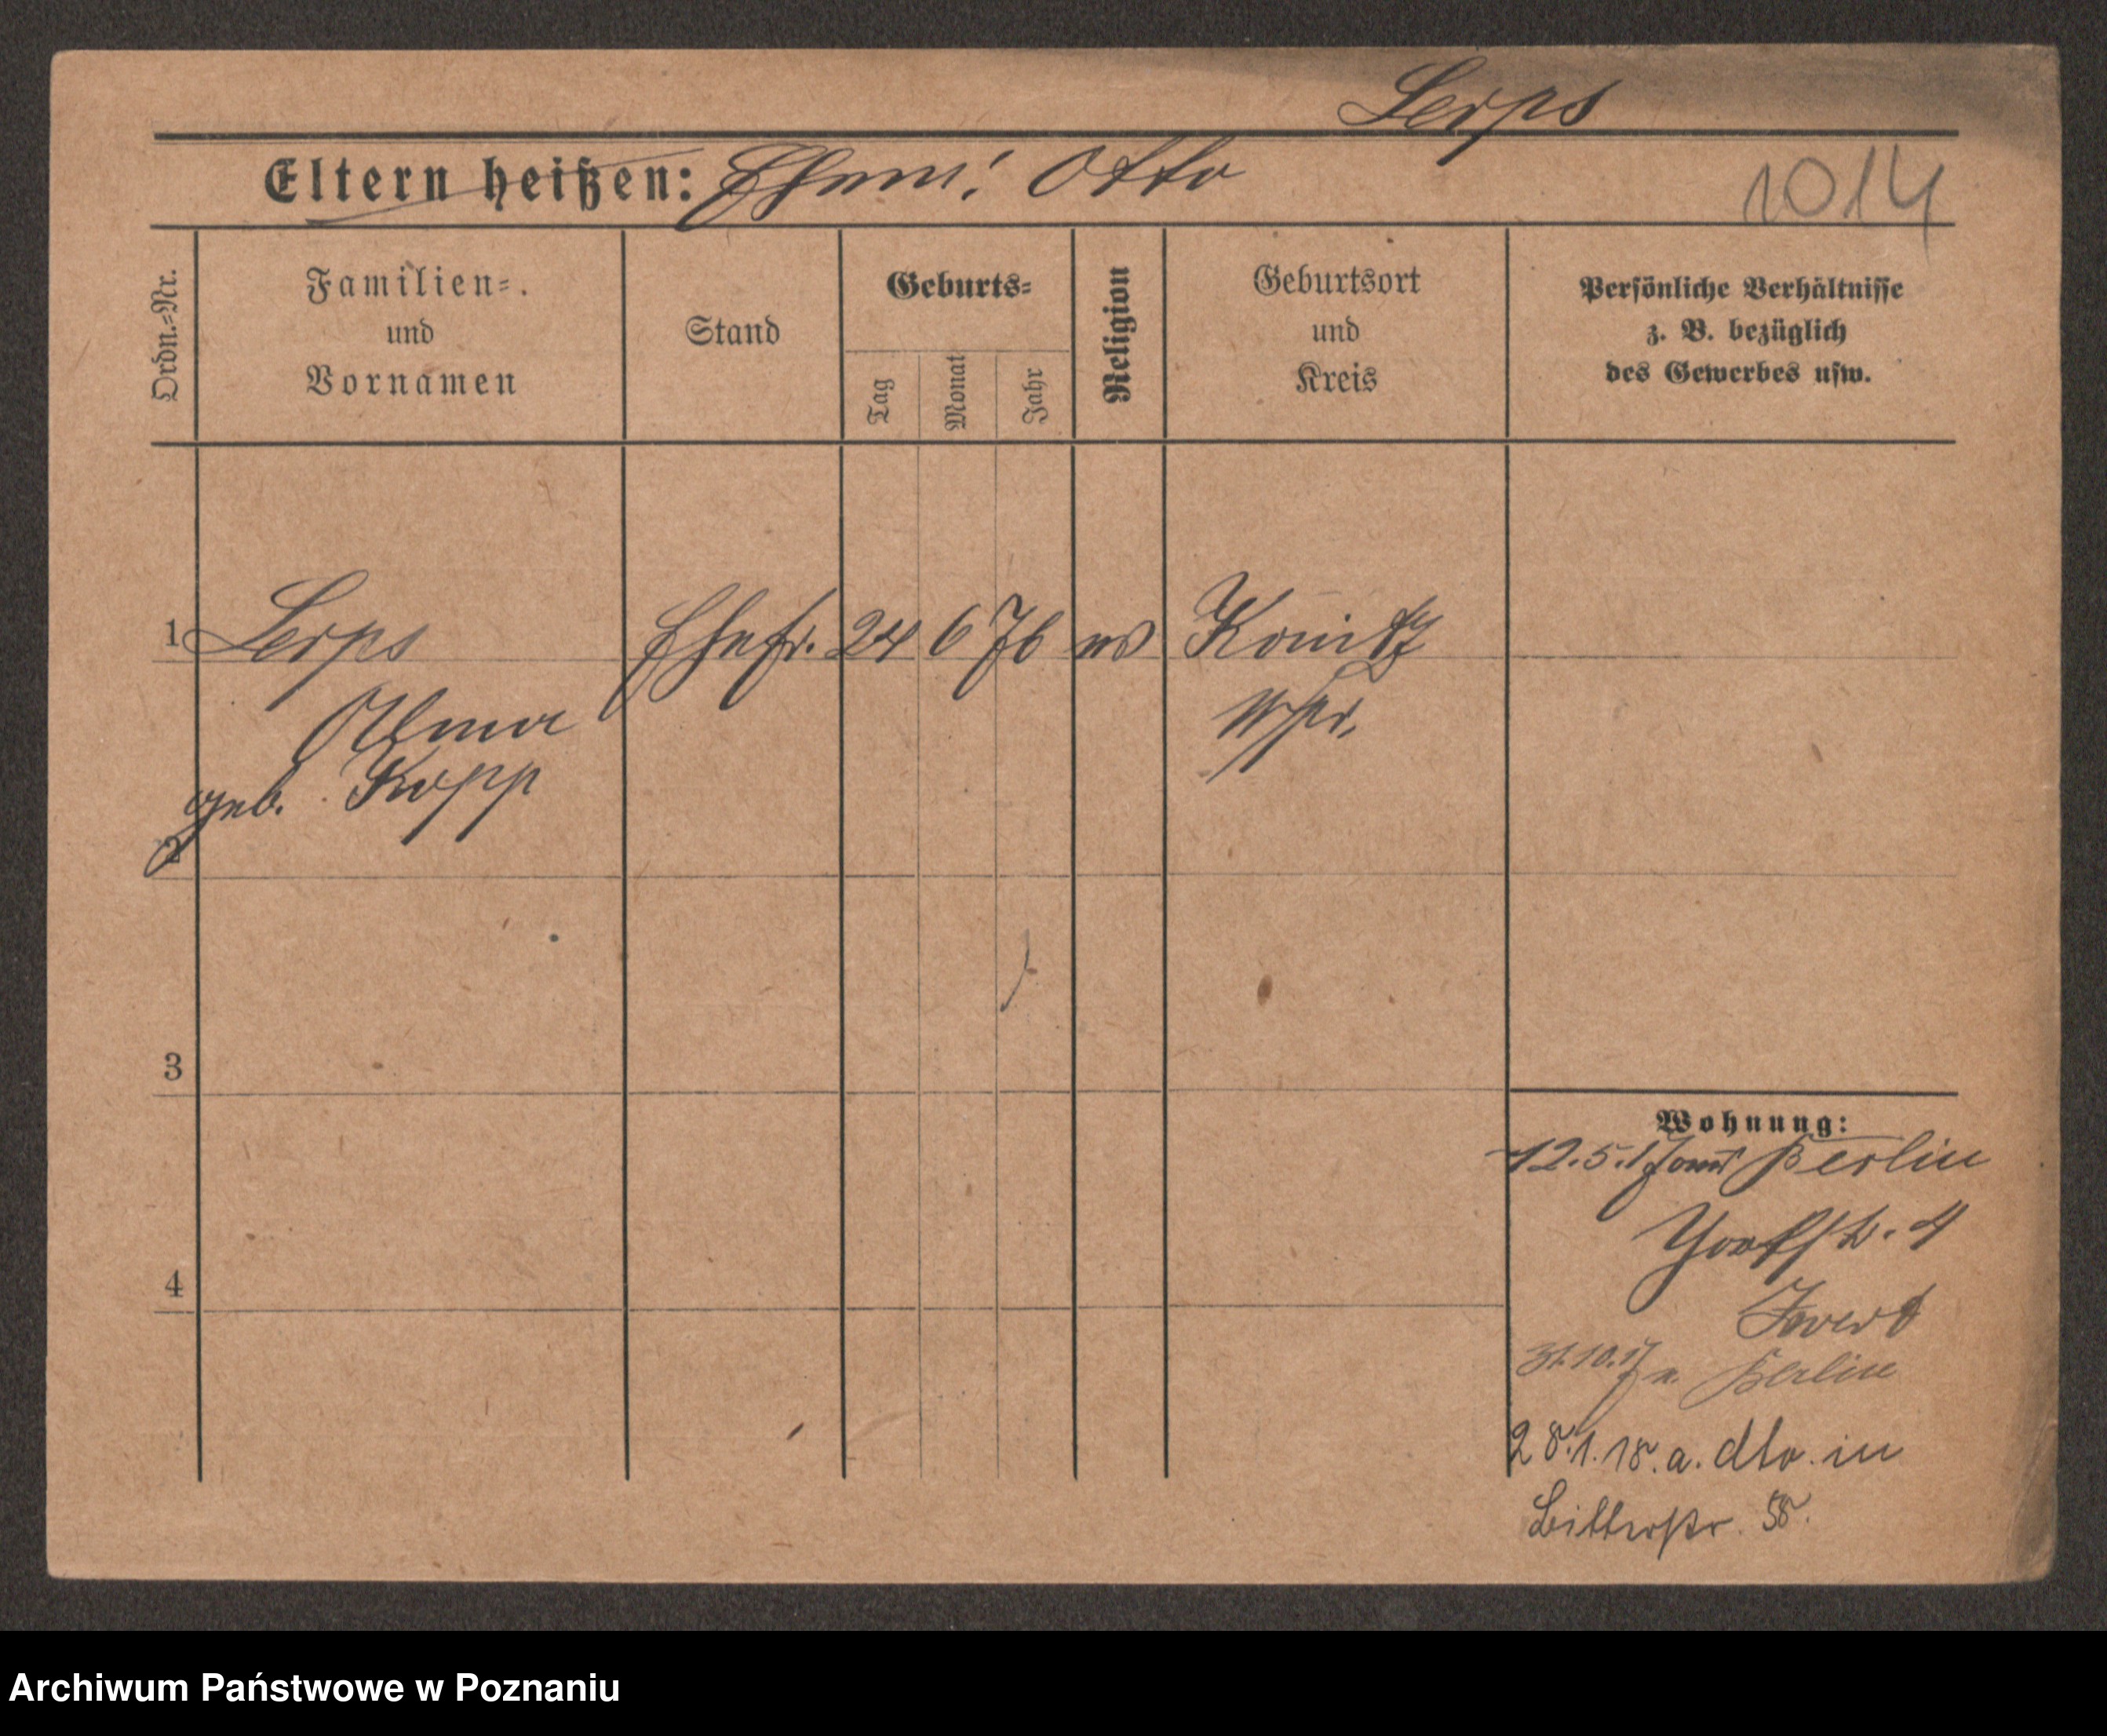 Serps
Eltern heißen: Ehem: Otto
1014
Ordn.=Nr.
Familien=
und
Vornamen
Stand
Geburts=
Tag
Monat
Jahr
Religion
Geburtsort
und
Kreis
Persönliche Verhältnisse
z. B. bezüglich
des Gewerbes usw.
1 Serps Ehefr. 24 6 76 ev Konitz
Wpr.
geb. Kopp
2
3
4
Wohnung:
12.5.17 aus Berlin
Yorkstr. 4
31.10.17 n. Berlin
28.1.18. a. dto. in
58.
Archiwum Państwowe w Poznaniu